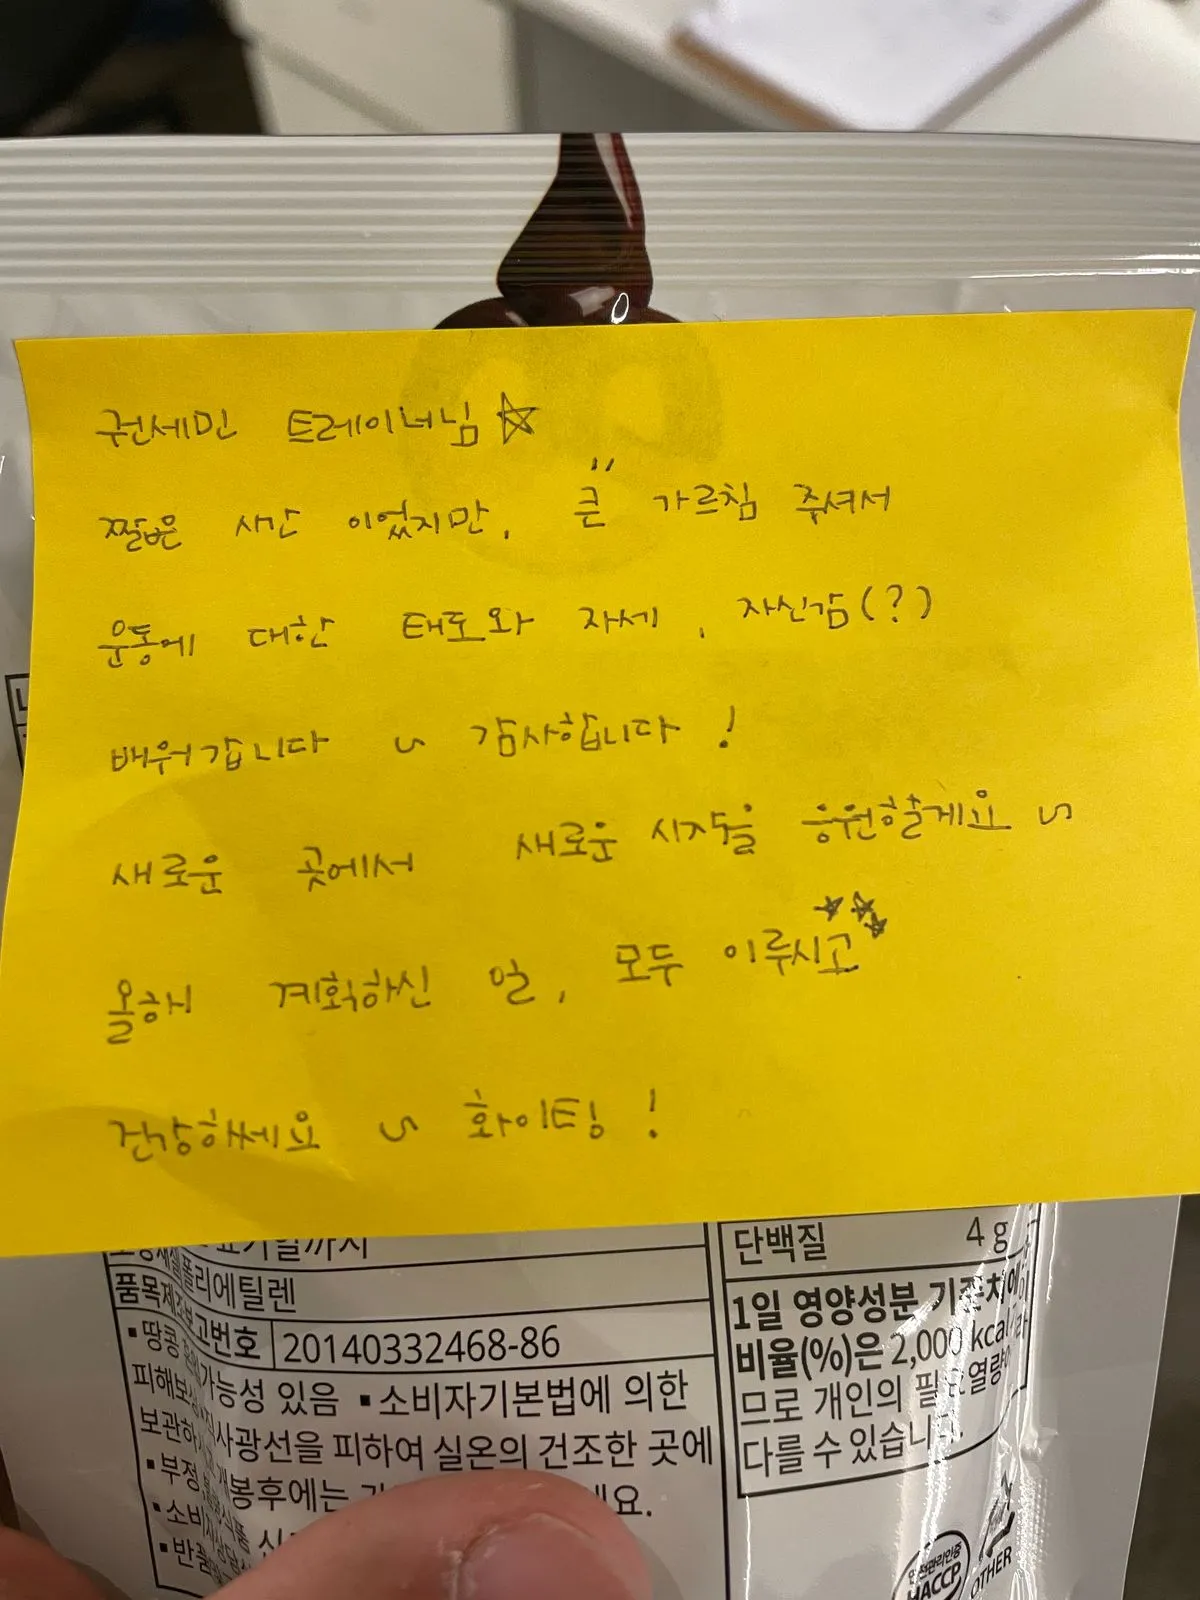 권세민 트레이너님 ☆
짧은 시간 이었지만, 큰 가르침 주셔서
운동에 대한 태도와 자세, 자신감(?)
배워갑니다 ~ 감사합니다 !
새로운 곳에서 새로운 시작을 응원할게요 ~
올해 계획하신 일, 모두 이루시고 ☆☆☆
건강하세요 ~ 화이팅 !
폴리에틸렌
고번호 20140332468-86
▪땅콩 가능성 있음 ▪소비자기본법에 의한
사광선을 피하여 실온의 건조한 곳에
봉후에는
▪부정
▪반품
단백질 4 g
1일 영양성분 기준치에
비율(%)은 2,000 kcal
므로 개인의 필요열량
다를 수 있습니다.
HACCP
OTHER